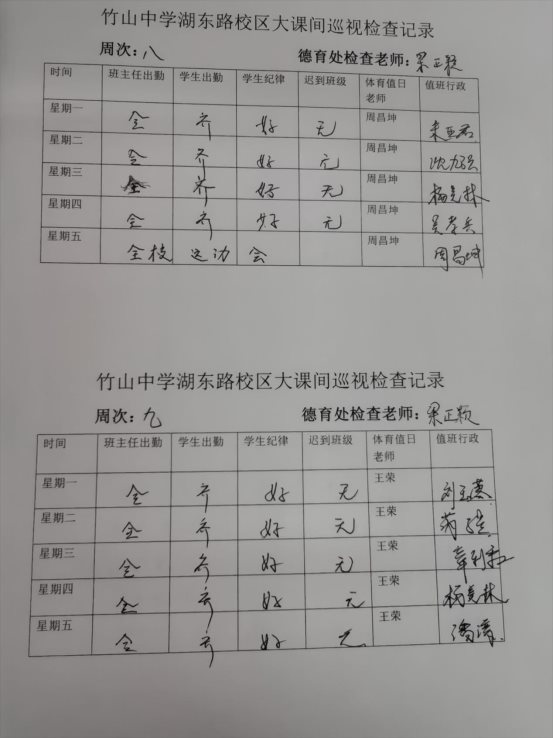 竹山中学湖东路校区大课间巡视检查记录
周次：八 德育处检查老师：梁正颖
时间 班主任出勤 学生出勤 学生纪律 迟到班级 体育值日老师 值班行政
星期一 全 齐 好 无 周昌坤
星期二 全 齐 好 无 周昌坤
星期三 全 齐 好 无 周昌坤 杨克林
星期四 全 齐 好 无 周昌坤 吴孝兵
星期五 全校 运动 会 周昌坤 周昌坤
竹山中学湖东路校区大课间巡视检查记录
周次：九 德育处检查老师：梁正颖
时间 班主任出勤 学生出勤 学生纪律 迟到班级 体育值日老师 值班行政
星期一 全 齐 好 无 王荣
星期二 全 齐 好 无 王荣
星期三 全 齐 好 无 王荣
星期四 全 齐 好 无 王荣 杨克林
星期五 全 齐 好 无 王荣